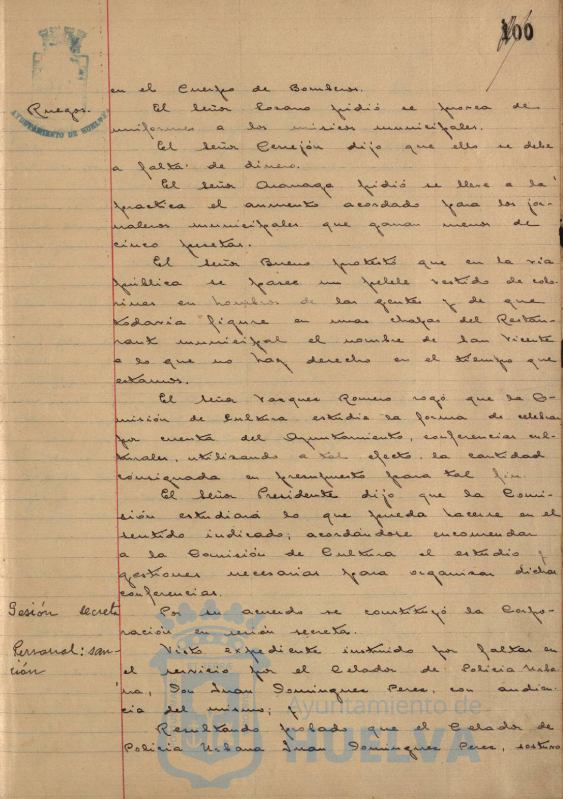 100
AYUNTAMIENTO DE HUELVA
en el Cuerpo de Bomberos.
Ruegos.
El Señor Lozano pidió se provea de
uniformes a los músicos municipales.
El Señor Cerrejón dijo que ello se debe
a falta de dinero.
El Señor pidió se lleve a la
practica el aumento acordado para los jor-
naleros municipales que ganan menos de
cinco pesetas.
El Señor Bueno protestó que en la via
pública se pasee un pelele vestido de colo-
rines en hombros de las gentes y de que
todavia figure en unas chapas del Restau-
rant municipal el nombre de San Vicente
a lo que no hay derecho en el tiempo que
estamos.
El Señor Vazquez Romero rogó que la Co-
misión de Cultura estudie la forma de celebrar
por cuenta del Ayuntamiento, conferencias cul-
turales, utilizando a tal efecto, la cantidad
consignada en presupuesto para tal fin.
El Señor Presidente dijo que la Comi-
sión estudiará lo que pueda hacerse en el
sentido indicado; acordándose encomendar
a la Comisión de Cultura el estudio y
gestiones necesarias para organizar dichas
conferencias.
Sesión secreta
Por su acuerdo se constituyó la Corpo-
ración en sesión secreta.
Personal: san-
ción
Visto expediente instruido por faltas en
el servicio por el Celador de Policia Urba-
na, Don Juan Dominguez Perez, con audien-
cia del mismo; y
Resultando probado que el Celador de
Policia Urbana Juan Dominguez Perez, sostuvo
Ayuntamiento de
HUELVA